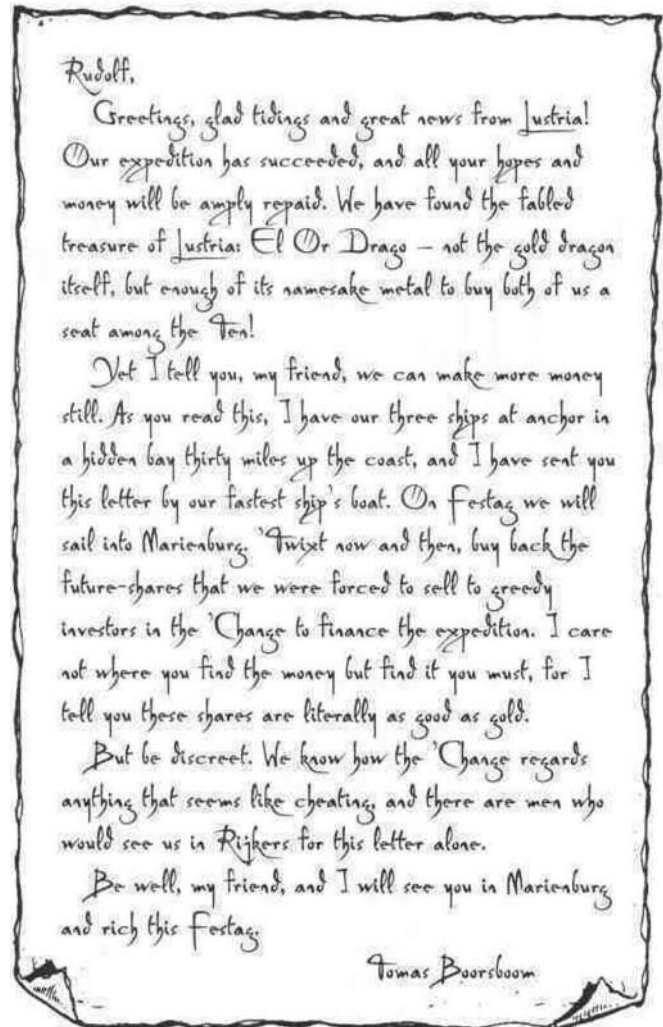 Rudolf,
Greetings, glad tidings and great news from Lustria!
Our expedition has succeeded, and all your hopes and
money will be amply repaid. We have found the fabled
treasure of Lustria: El Or Drago – not the gold dragon
itself, but enough of its namesake metal to buy both of us a
seat among the Ten!
Yet I tell you, my friend, we can make more money
still. As you read this, I have our three ships at anchor in
a hidden bay thirty miles up the coast, and I have sent you
this letter by our fastest ship's boat. On Festag we will
sail into Marienburg. 'Twixt now and then, buy back the
future-shares that we were forced to sell to greedy
investors in the 'Change to finance the expedition. I care
not where you find the money but find it you must, for I
tell you these shares are literally as good as gold.
But be discreet. We know how the 'Change regards
anything that seems like cheating, and there are men who
would see us in Rijkers for this letter alone.
Be well, my friend, and I will see you in Marienburg
and rich this Festag.
Tomas Boorsboom